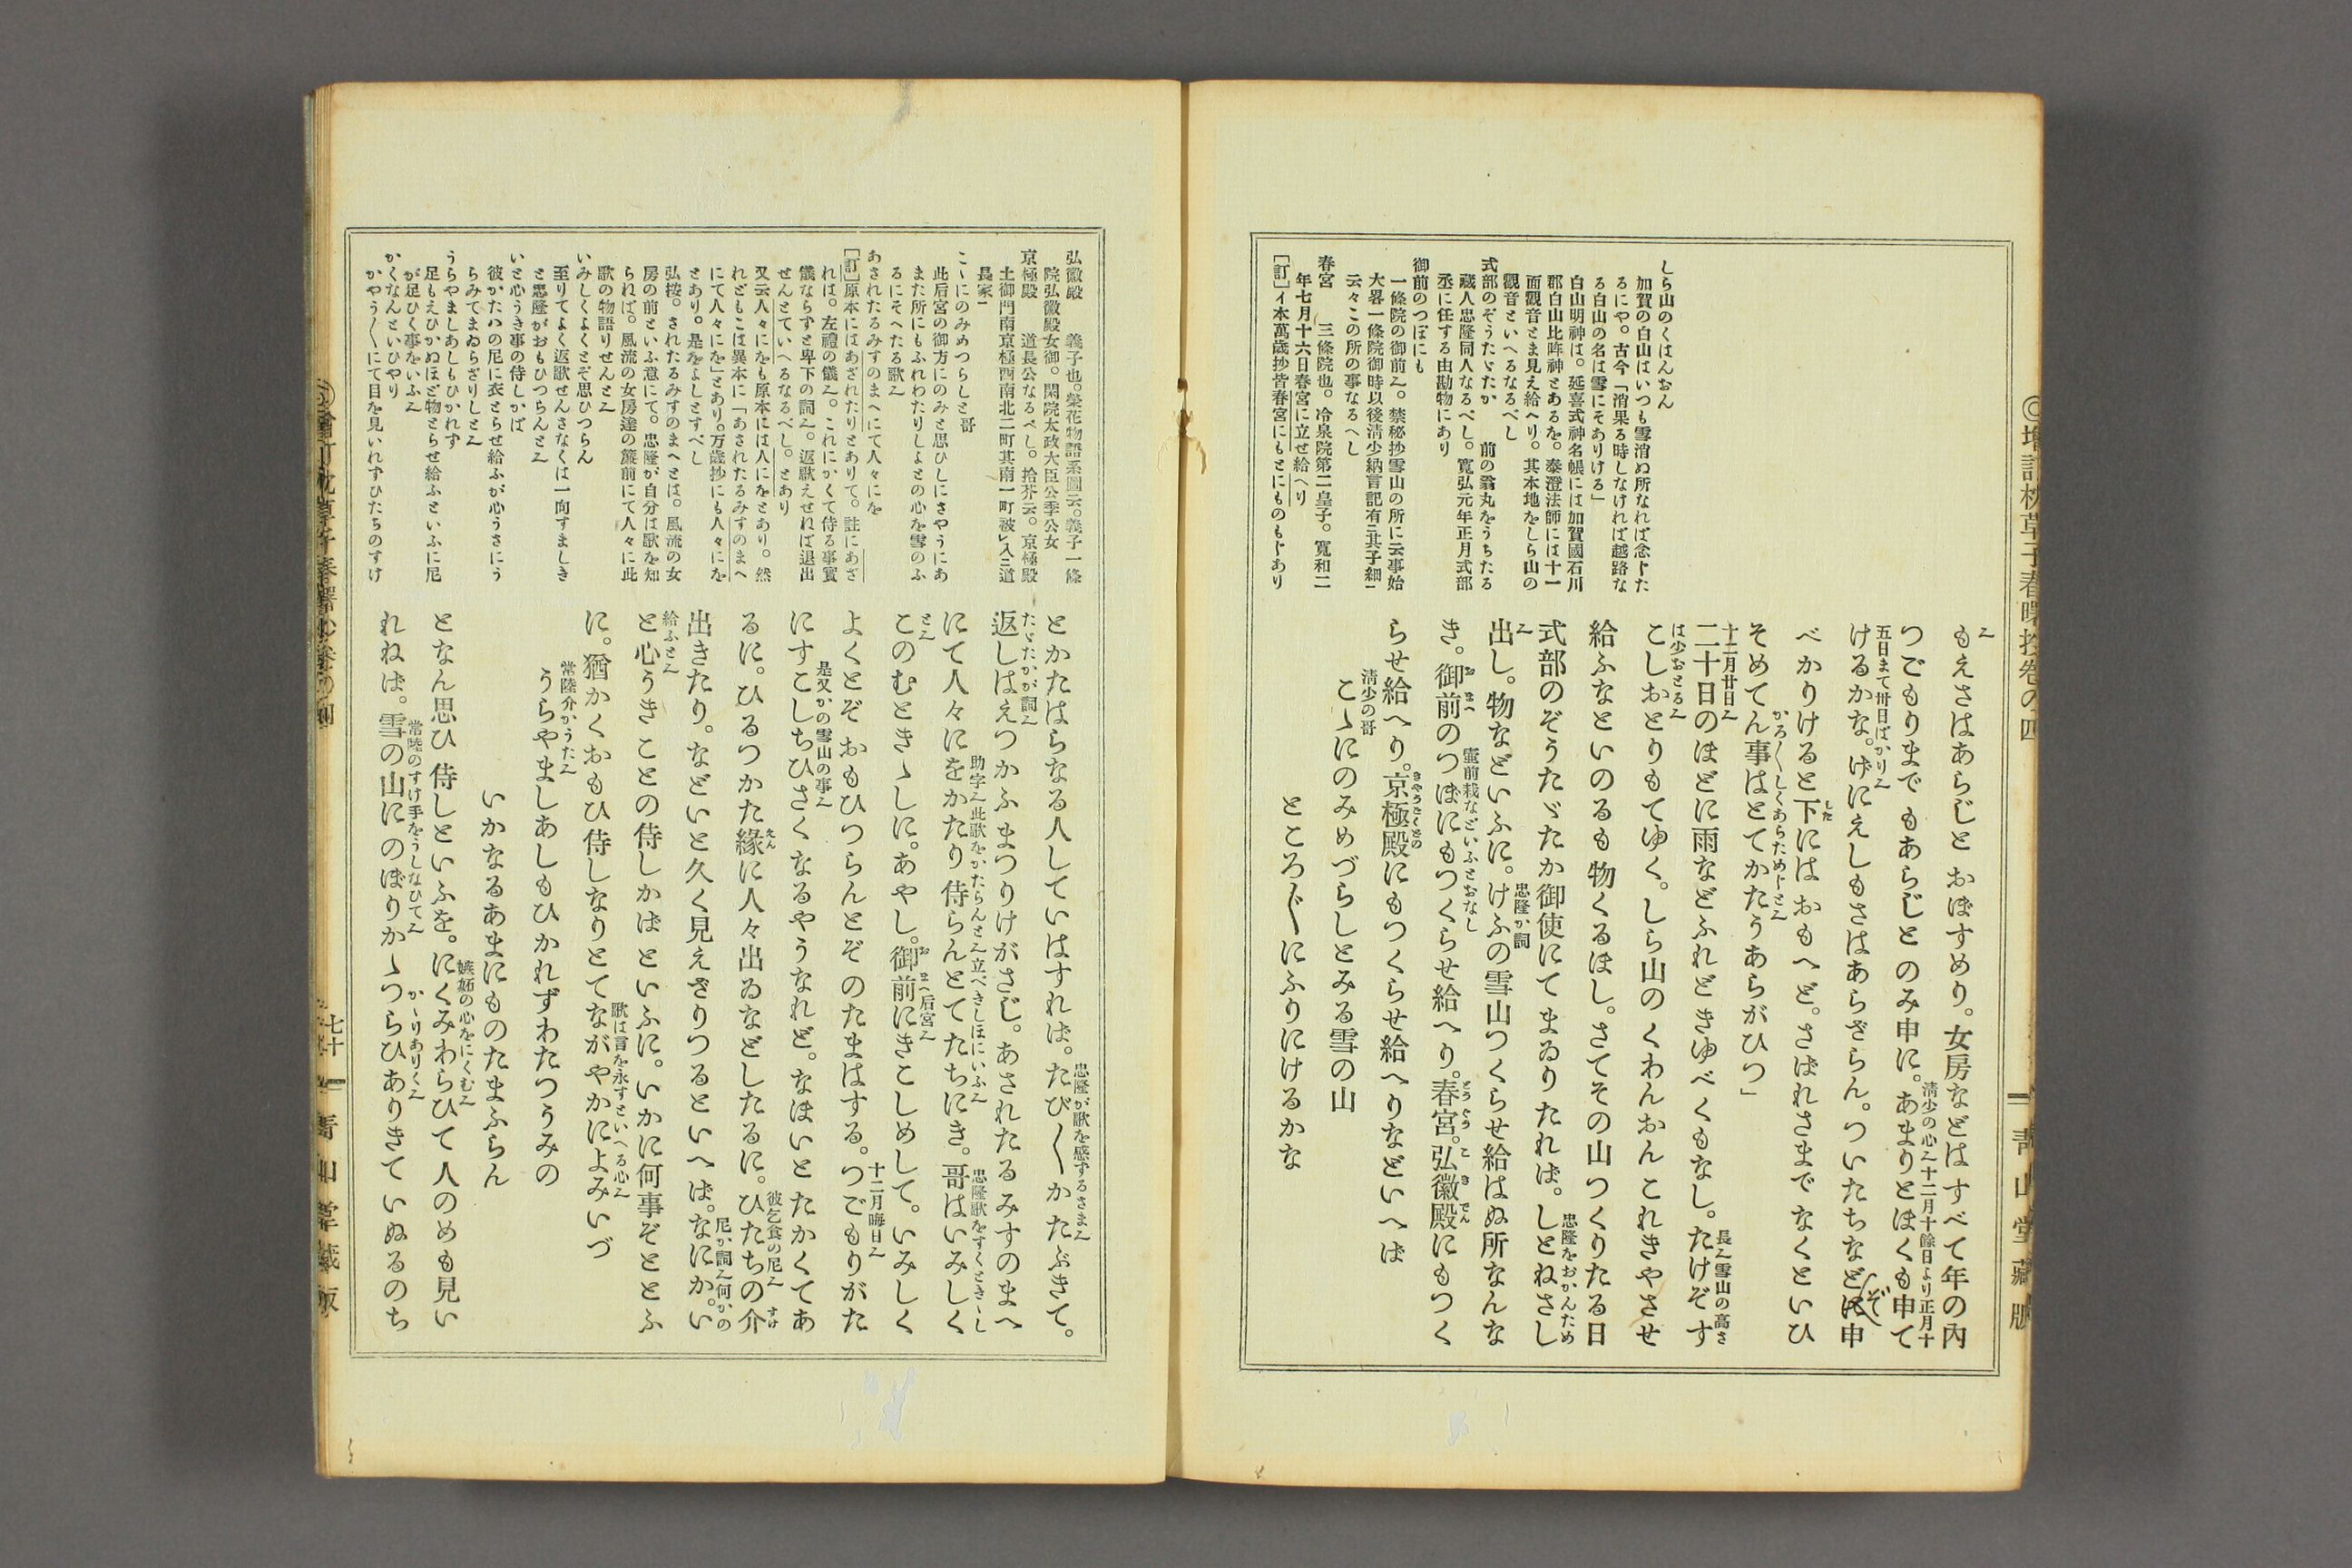 しら山のくはんおん
加賀の白山はいつも雪消ぬ所なれば念じた
るにや。古今「消果る時しなければ越路な
る白山の名は雪にそありける」
白山明神は。延喜式神名帳には加賀國石川
郡白山比咩神とあるを。泰澄法師には十一
面觀音とま見え給へり。其本地をしら山の
觀音といへるなるべし
式部のぞうたゞたか 前の翁丸をうちたる
藏人忠隆同人なるべし。寬弘元年正月式部
丞に任する由勘物にあり
御前のつぼにも
一條院の御前〻。禁秘抄雪山の所に云事始
大畧一條院御時以後淸少納言記有二其子細一
云々この所の事なるへし
春宮 三條院也。冷泉院第二皇子。寬和二
年七月十六日春宮に立せ給へり
[訂]イ本萬歲抄皆春宮にもとにものもじあり
もえさはあらじと おぼすめり。女房などはすべて年の內
つごもりまで もあらじと のみ申に。あまりとほくも申て
淸少の心〻十二月十餘日より正月十
五日まて卅日ばかり〻
けるかな。げにえしもさはあらざらん。ついたちなどは申
ぞ
べかりけると下にはおもへど。さばれさまでなくといひ
した
そめてん事はとてかたうあらがひつ」
かろ〳〵しくあらためじと〻
十二月廿日〻
二十日のほどに雨などふれどきゆべくもなし。たけぞす
長〻雪山の高さ
は少おとる〻
こしおとりもてゆく。しら山のくわんおんこれきやさせ
給ふなといのるも物くるほし。さてその山つくりたる日
式部のぞうたゞたか御使にてまゐりたれば。しとねさし
忠隆をおかんため
出し。物などいふに。けふの雪山つくらせ給はぬ所なんな
忠隆か詞
き。御前のつぼにもつくらせ給へり。春宮。弘徽殿にもつく
壷前栽などいふとおなし
らせ給へり。京極殿にもつくらせ給へりなどいへば
淸少の哥
こゝにのみめづらしとみる雪の山
ところ〴〵にふりにけるかな
靑山堂藏版
弘徽殿 義子也。榮花物語系圖云。義子一條
院弘徽殿女御。閑院太政大臣公季公女
京極殿 道長公なるべし。拾芥云。京極殿
土御門南京極西南北二町其南一町被レ入三道
長家一
こゝにのみめつらしと哥
此后宮の御方にのみと思ひしにさやうにあ
また所にもふれわたりしよとの心を雪のふ
るにそへたる歌〻
あされたるみすのまへにて人々にを
[訂]原本にはあざれたりとありて。註にあざ
れは。左禮の儀〻。これにかくて侍る事實
儀ならずと卑下の詞〻。返歌えせねば退出
せんとていへるなるべし。とあり
又云人々にをも原本には人にをとあり。然
れどもこは異本に「あされたるみすのまへ
にて人々にを」とあり。万歲抄にも人々にを
とあり。是をよしとすべし
弘按。されたるみすのまへとは。風流の女
房の前といふ意にて。忠隆が自分は歌を知
らねば。風流の女房達の簾前にて人々に此
歌の物語りせんと〻
いみしくよくとぞ思ひつらん
至りてよく返歌せんさなくは一向すましき
と忠隆がおもひつらんと〻
いと心うき事の侍しかば
彼かたハの尼に衣とらせ給ふが心うさにう
らみてまゐらざりしと〻
うらやましあしもひかれず
足もえひかぬほど物とらせ給ふといふに尼
が足ひく事をいふ〻
かくなんといひやり
かやう〳〵にて目を見いれずひたちのすけ
とかたはらなる人していはすれば。たび〳〵かたぶきて。
忠隆が歌を感するさま〻
たゞたかが詞〻
返しはえつかふまつりけがさじ。あされたるみすのまへ
にて人々にをかたり侍らんとてたちにき。哥はいみしく
助字〻此歌をかたらんと〻立べきしほにいふ〻
忠隆歌をすくときゝし
と〻
このむときゝしに。あやし。御前にきこしめして。いみしく
后宮〻
よくとぞおもひつらんとぞのたまはする。つごもりがた
十二月晦日〻
にすこしちひさくなるやうなれど。なほいとたかくてあ
是又かの雪山の事〻
るに。ひるつかた緣に人々出ゐなどしたるに。ひたちの介
彼乞食の尼〻
出きたり。などいと久く見えざりつるといへば。なにか。い
尼か詞〻何かの
給ふと〻
と心うきことの侍しかばといふに。いかに何事ぞととふ
に。猶かくおもひ侍しなりとてながやかによみいづ
歌は言を永すといへる心〻
常陸介かうた〻
うらやましあしもひかれずわたつうみの
いかなるあまにものたまふらん
となん思ひ侍しといふを。にくみわらひて人のめも見い
嫉妬の心をにくむ〻
れねば。雪の山にのぼりかゝつらひありきていぬるのち
常陸のすけ手をうしなひて〻
かゝりありく〻
七十一
靑山堂藏版